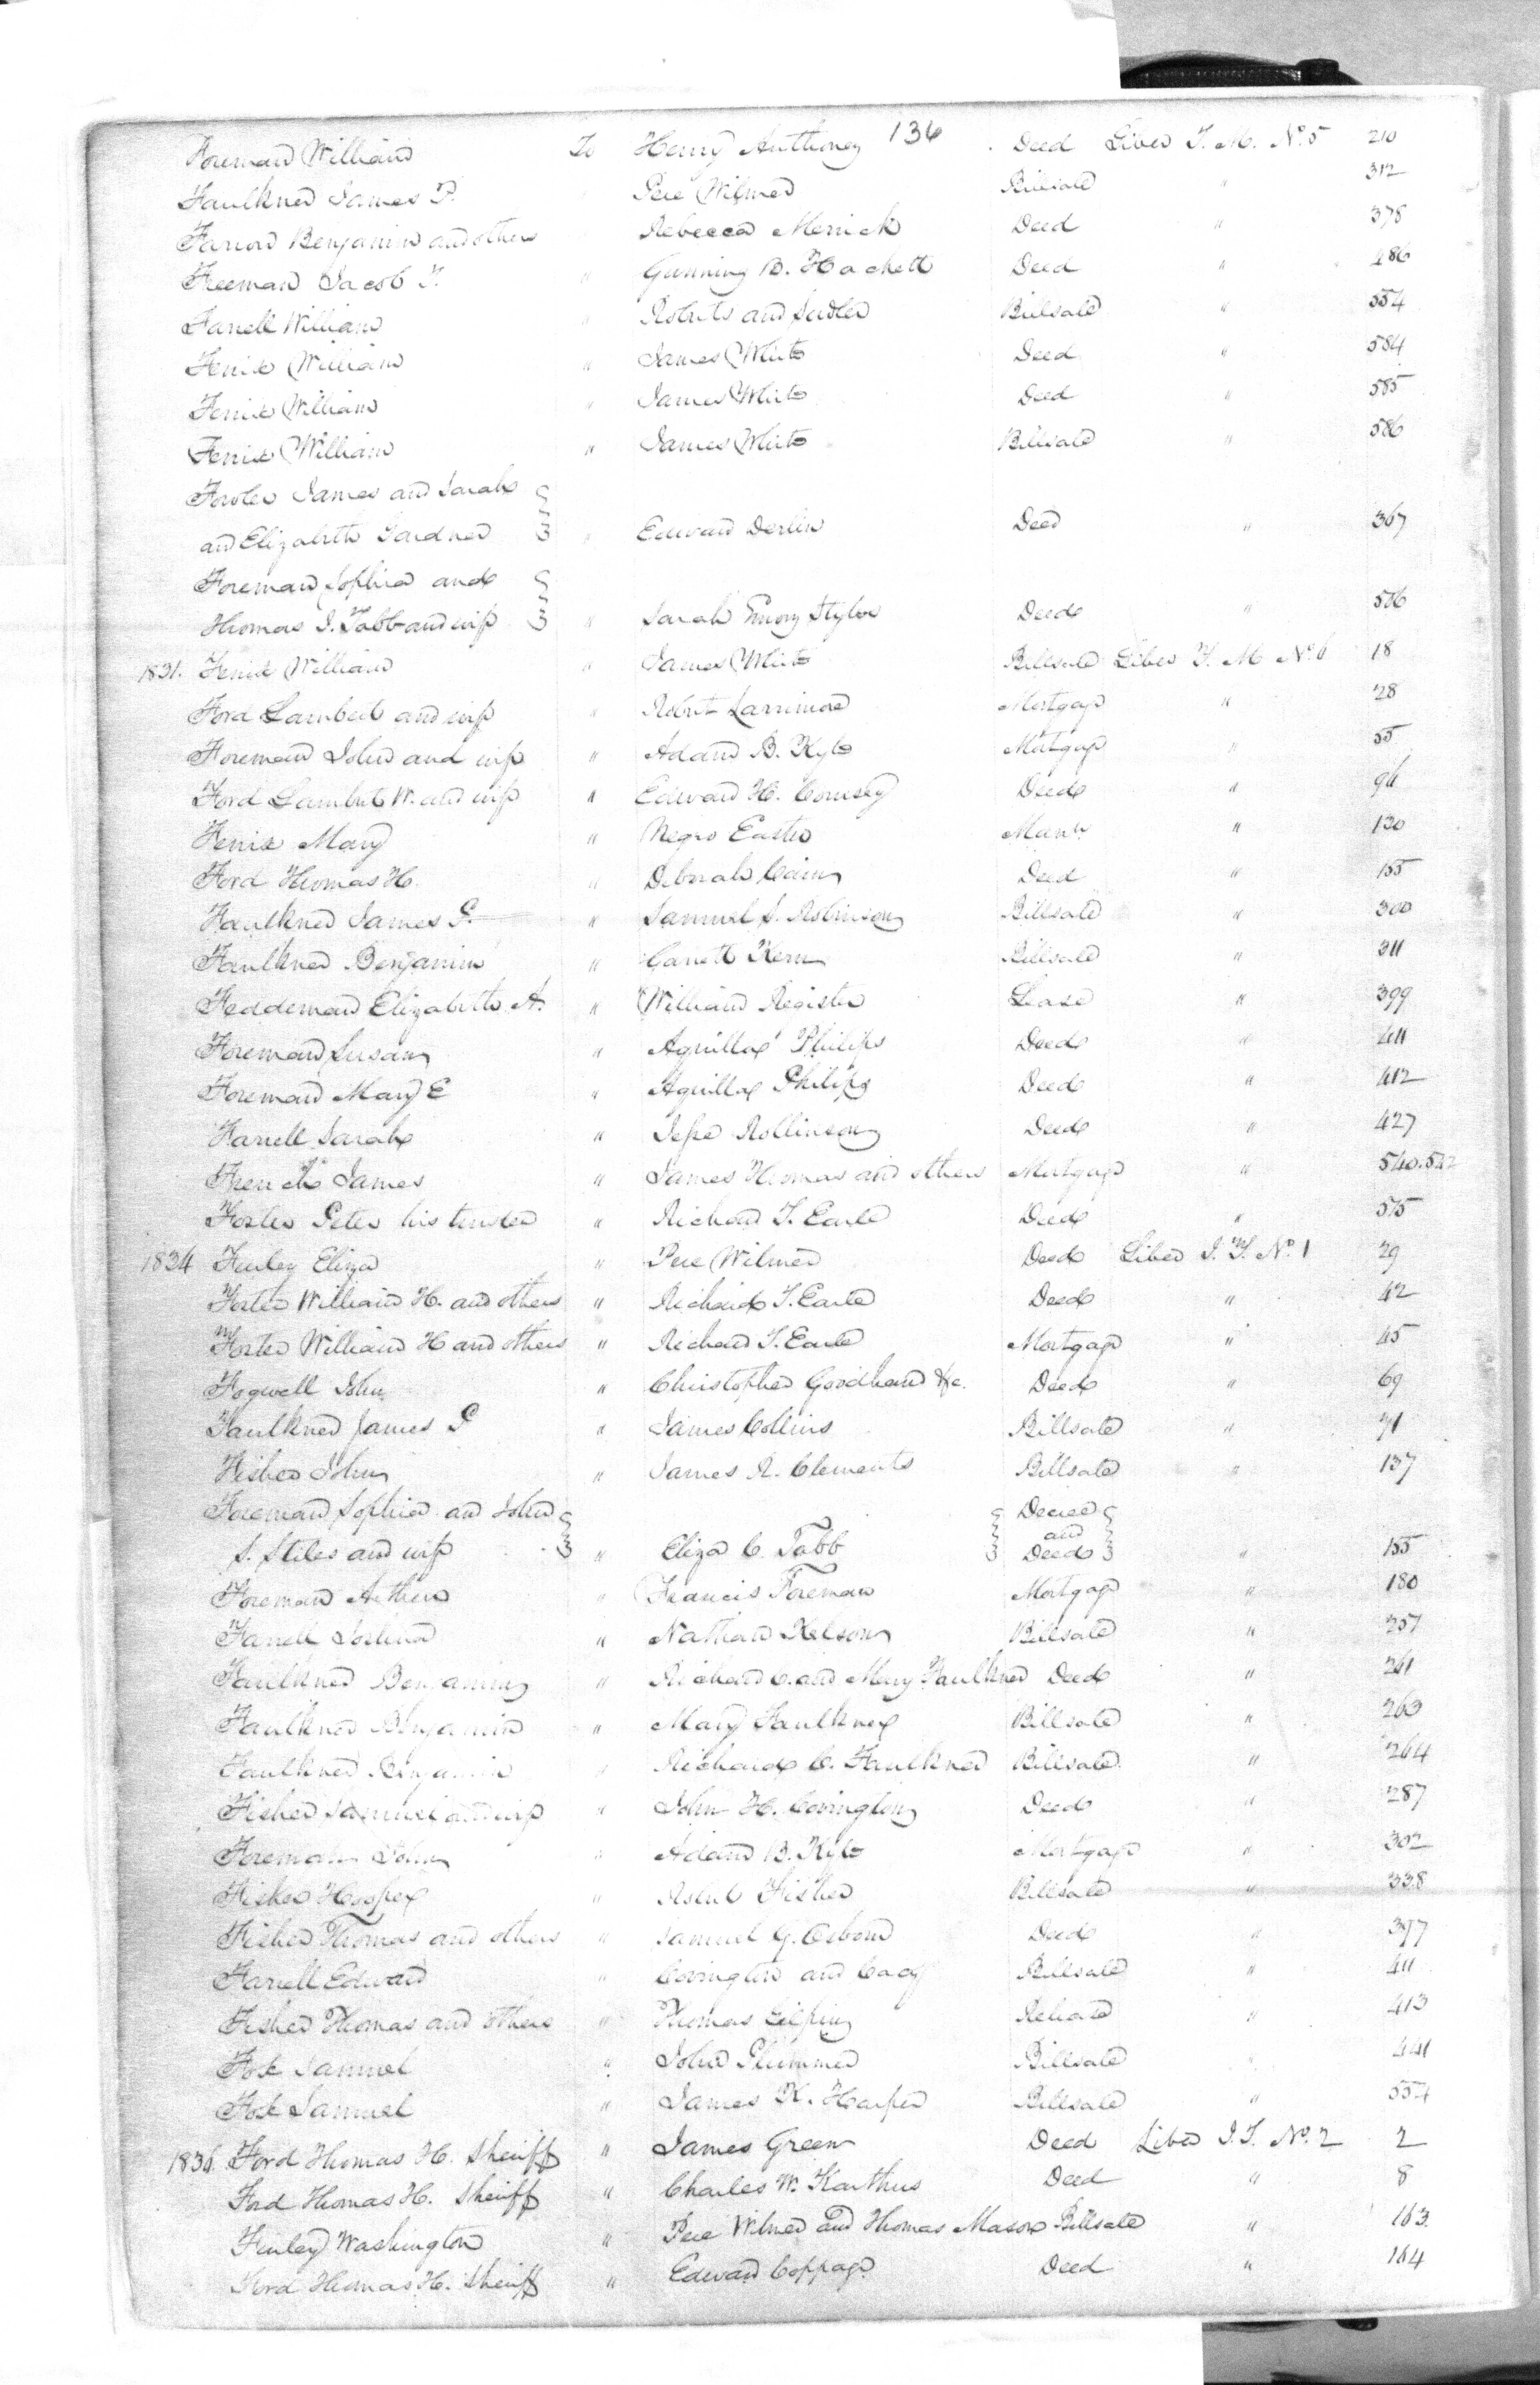 136
Foreman William To Henry Anthoney Deed Liber T. M. No. 5 210
Faulkner James P. Pere Wilmer Billsale " 312
Farrow Benjamin and others Rebecca Merrick Deed " 378
Freeman Jacob T. " Gunning B. Hackett Deed " 486
Farrell William " Roberts and Sudler Billsale " 554
Fenix William " James White Deed " 584
Fenix William " James White Deed " 585
Fenix William " James White Billsale " 586
Fowler James and Sarah
and Elizabeth Gardner " Edward Derlin Deed " 367
Foreman Sophia and
Thomas I. Tabb and wife " Sarah Emory Styles Deed " 506
1831. Fenix William " James White Billsale Liber T. M No. 6 18
Ford Lambert and wife " Robert Larrimore Mortgage " 28
Foreman John and wife " Adam B. Kyle Mortgage " 55
Ford Lambert W. and wife " Edward H. Coursey Deed " 96
Fenix Mary " Negro Easter Manu " 130
Ford Thomas H. " Deborah Cain Deed " 155
Faulkner James P. " Samuel S. Robinson Billsale " 300
Faulkner Benjamin " Garrett Kern Billsale " 311
Feddeman Elizabeth A. " William Register Lease " 399
Foreman Susan " Aquilla Philips Deed " 411
Foreman Mary E " Aquilla Philips Deed " 412
Farrell Sarah " Jesse Rollinson Deed " 427
French James " James Thomas and others Mortgage " 540.542
Foster Peter his tender " Richard T. Earle Deed " 575
1834 Finley Eliza " Pere Wilmer Deed Liber J. T. No. 1 29
Foster William H. and others " Richard T. Earle Deed " 42
Foster William H and others " Richard T. Earle Mortgage " 45
Fogwell John " Christopher Goodhand &c. Deed " 69
Faulkner James P " James Collins Billsale " 71
Fisher John " James R. Clements Billsale " 137
Foreman Sophia and John Decree
and
S. Stiles and wife " Eliza C. Tabb Deed " 155
Foreman Arthur " Francis Foreman Mortgage " 180
Farrell " Nathan Nelson Billsale " 257
Faulkner Benjamin " Richard C. and Mary Faulkner Deed " 261
Faulkner Benjamin " Mary Faulkner Billsale " 263
Faulkner Benjamin " Richard C. Faulkner Billsale " 264
Fisher Samuel and wife " John H. Covington Deed " 287
Foreman John " Adam B. Kyle Mortgage " 302
Fisher Hooper " Robert Fisher Billsale " 338
Fisher Thomas and others " Samuel G. Osborn Deed " 397
Farrell Edward " Covington and Cacy Billsale " 411
Fisher Thomas and others " Thomas Gilpin Release " 413
Fox Samuel " John Plummer Billsale " 441
Fox Samuel " James K. Harper Billsale " 554
1836. Ford Thomas H. Sheriff " James Green Deed Liber J. T. No. 2 2
Ford Thomas H. Sheriff " Charles W. Karthus Deed " 8
Finley Washington " Pere Wilmer and Thomas Mason Billsale " 163
Ford Thomas H. Sheriff " Edward Coppage Deed " 164